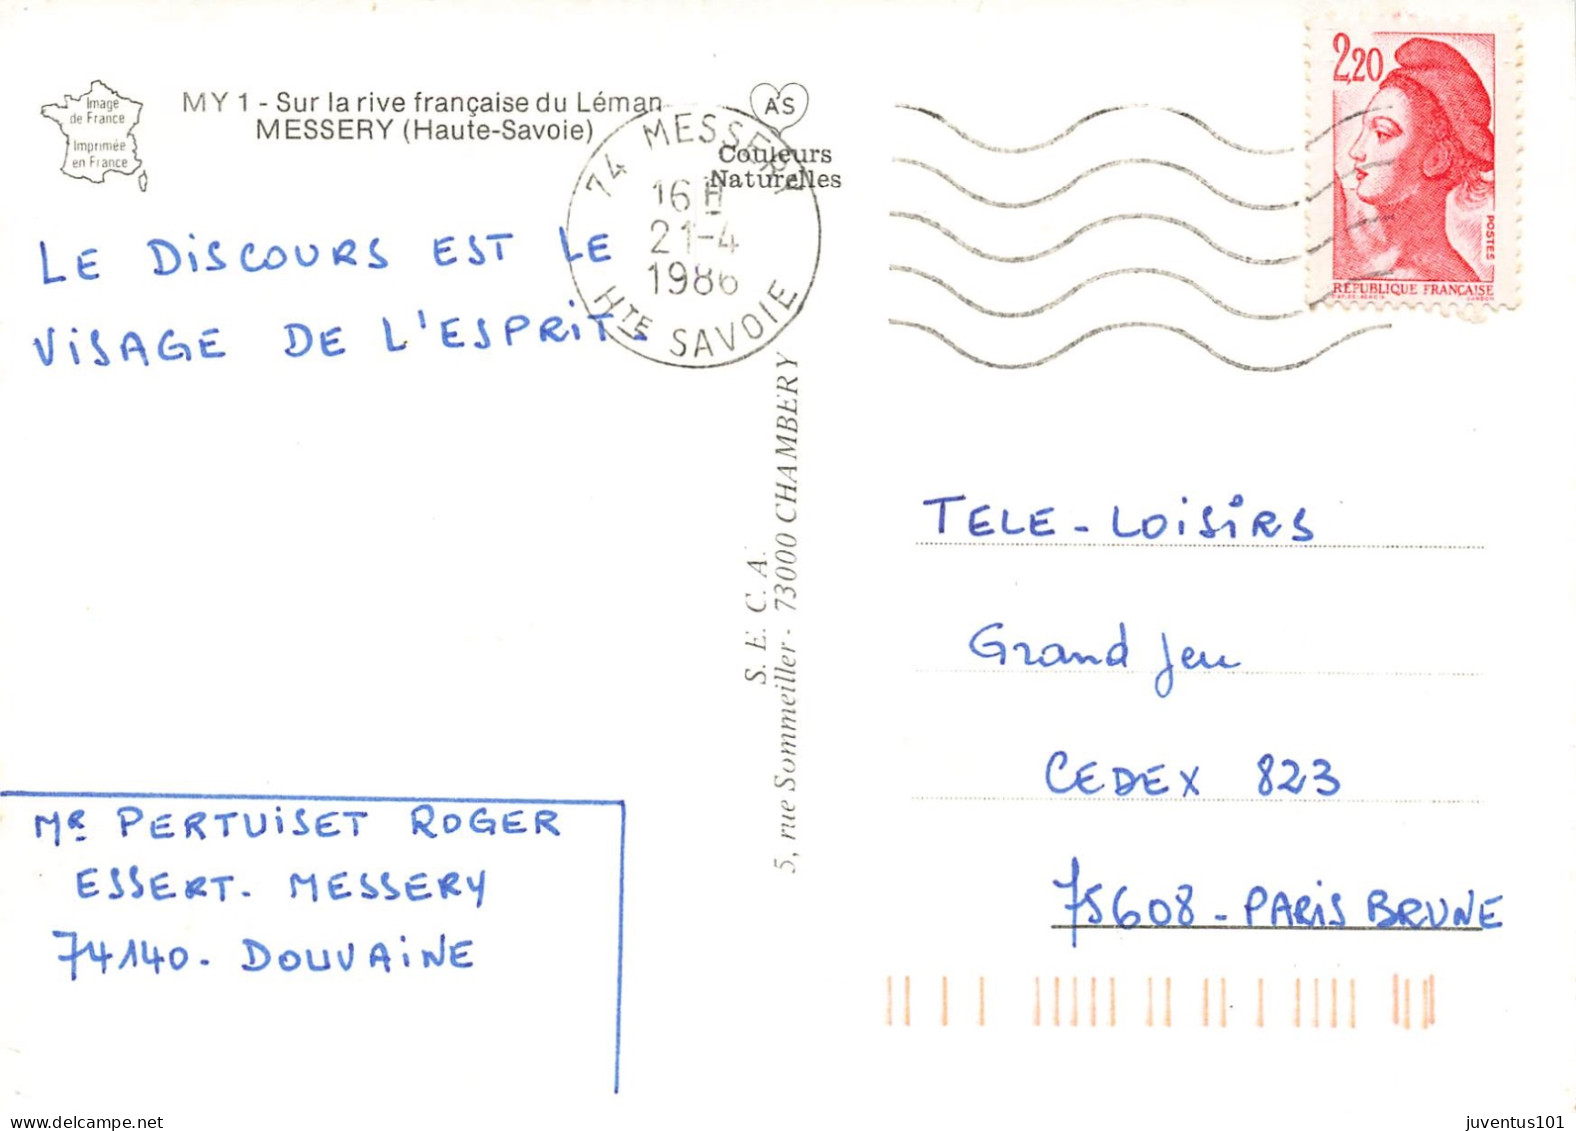 Image
de France
Imprimée
en France
MY 1 - Sur la rive française du Léman
MESSERY (Haute-Savoie)
A'S
Couleurs
Naturelles
74 MESSERY
16 H
21-4
1986
Hte SAVOIE
2,20
POSTES
RÉPUBLIQUE FRANÇAISE
LE DISCOURS EST LE
VISAGE DE L'ESPRIT.
S. E. C. A.
5, rue Sommeiller - 73000 CHAMBERY
TELE-LOISIRS
Grand Jeu
CEDEX 823
75608 - PARIS BRUNE
MR PERTUISET ROGER
ESSERT. MESSERY
74140. DOUVAINE
juventus101